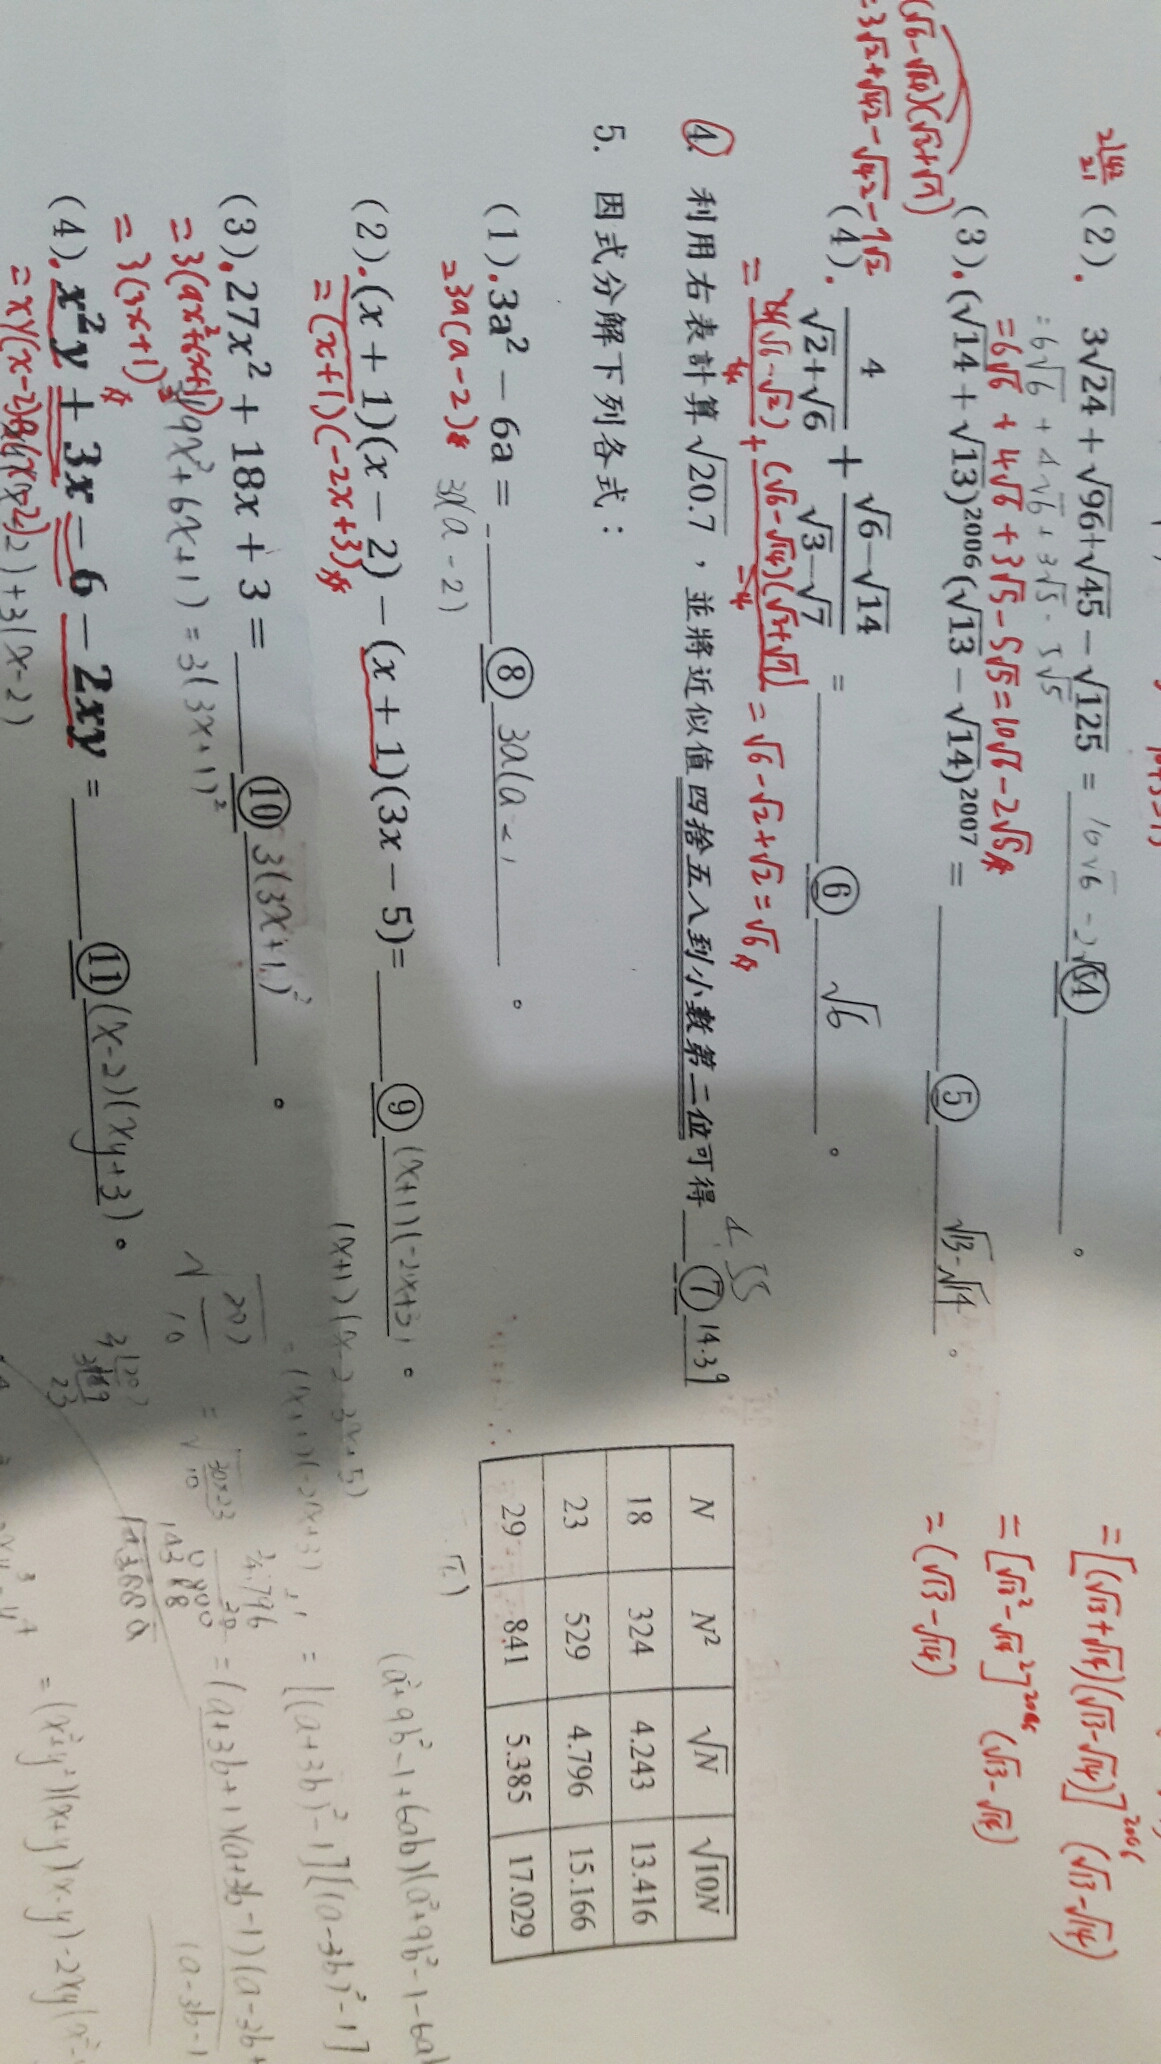 (2). 3√24 + √96 + √45 − √125 = 10√6 - 2√5 ④ 。
= 6√6 + 4√6 + 3√5 - 5√5
= 6√6 + 4√6 + 3√5 - 5√5 = 10√6 - 2√5
(3). (√14 + √13)²⁰⁰⁶(√13 − √14)²⁰⁰⁷ = ⑤ √13-√14 。
= [(√13+√14)(√13-√14)]²⁰⁰⁶ (√13-√14)
= [√13² - √14²]²⁰⁰⁶ (√13-√14)
= (√13-√14)
(√6-√14)(√3+√7)
= 3√2+√42-√42-7√2
(4). 4/(√2+√6) + (√6−√14)/(√3−√7) = ⑥ √6 。
= 4(√6-√2)/4 + (√6-√14)(√3+√7)/-4 = √6-√2+√2 = √6
4. 利用右表計算√20.7，並將近似值四捨五入到小數第二位可得 ⑦ 14.39
4.55
N N² √N √10N
18 324 4.243 13.416
23 529 4.796 15.166
29 841 5.385 17.029
5. 因式分解下列各式：
(1). 3a² − 6a = ⑧ 3a(a-2) 。
=3a(a-2)
3(a-2)
(2). (x + 1)(x − 2) − (x + 1)(3x − 5) = ⑨ (x+1)(-2x+3) 。
= (x+1)(-2x+3)
(x+1)(x-2-3x+5)
= (x+1)(-2x+3)
(3). 27x² + 18x + 3 = ⑩ 3(3x+1)² 。
= 3(9x²+6x+1)
3(9x²+6x+1) = 3(3x+1)²
= 3(3x+1)²
(4). x²y + 3x − 6 − 2xy = ⑪ (x-2)(xy+3) 。
= xy(x-2)+3(x-2)
(a²+9b²-1+6ab)(a²+9b²-1-6ab)
= [(a+3b)²-1][(a-3b)²-1]
= (a+3b+1)(a+3b-1)(a-3b+
(a-3b-1
= (x²+y²)(x+y)(x-y)-2xy(x²-